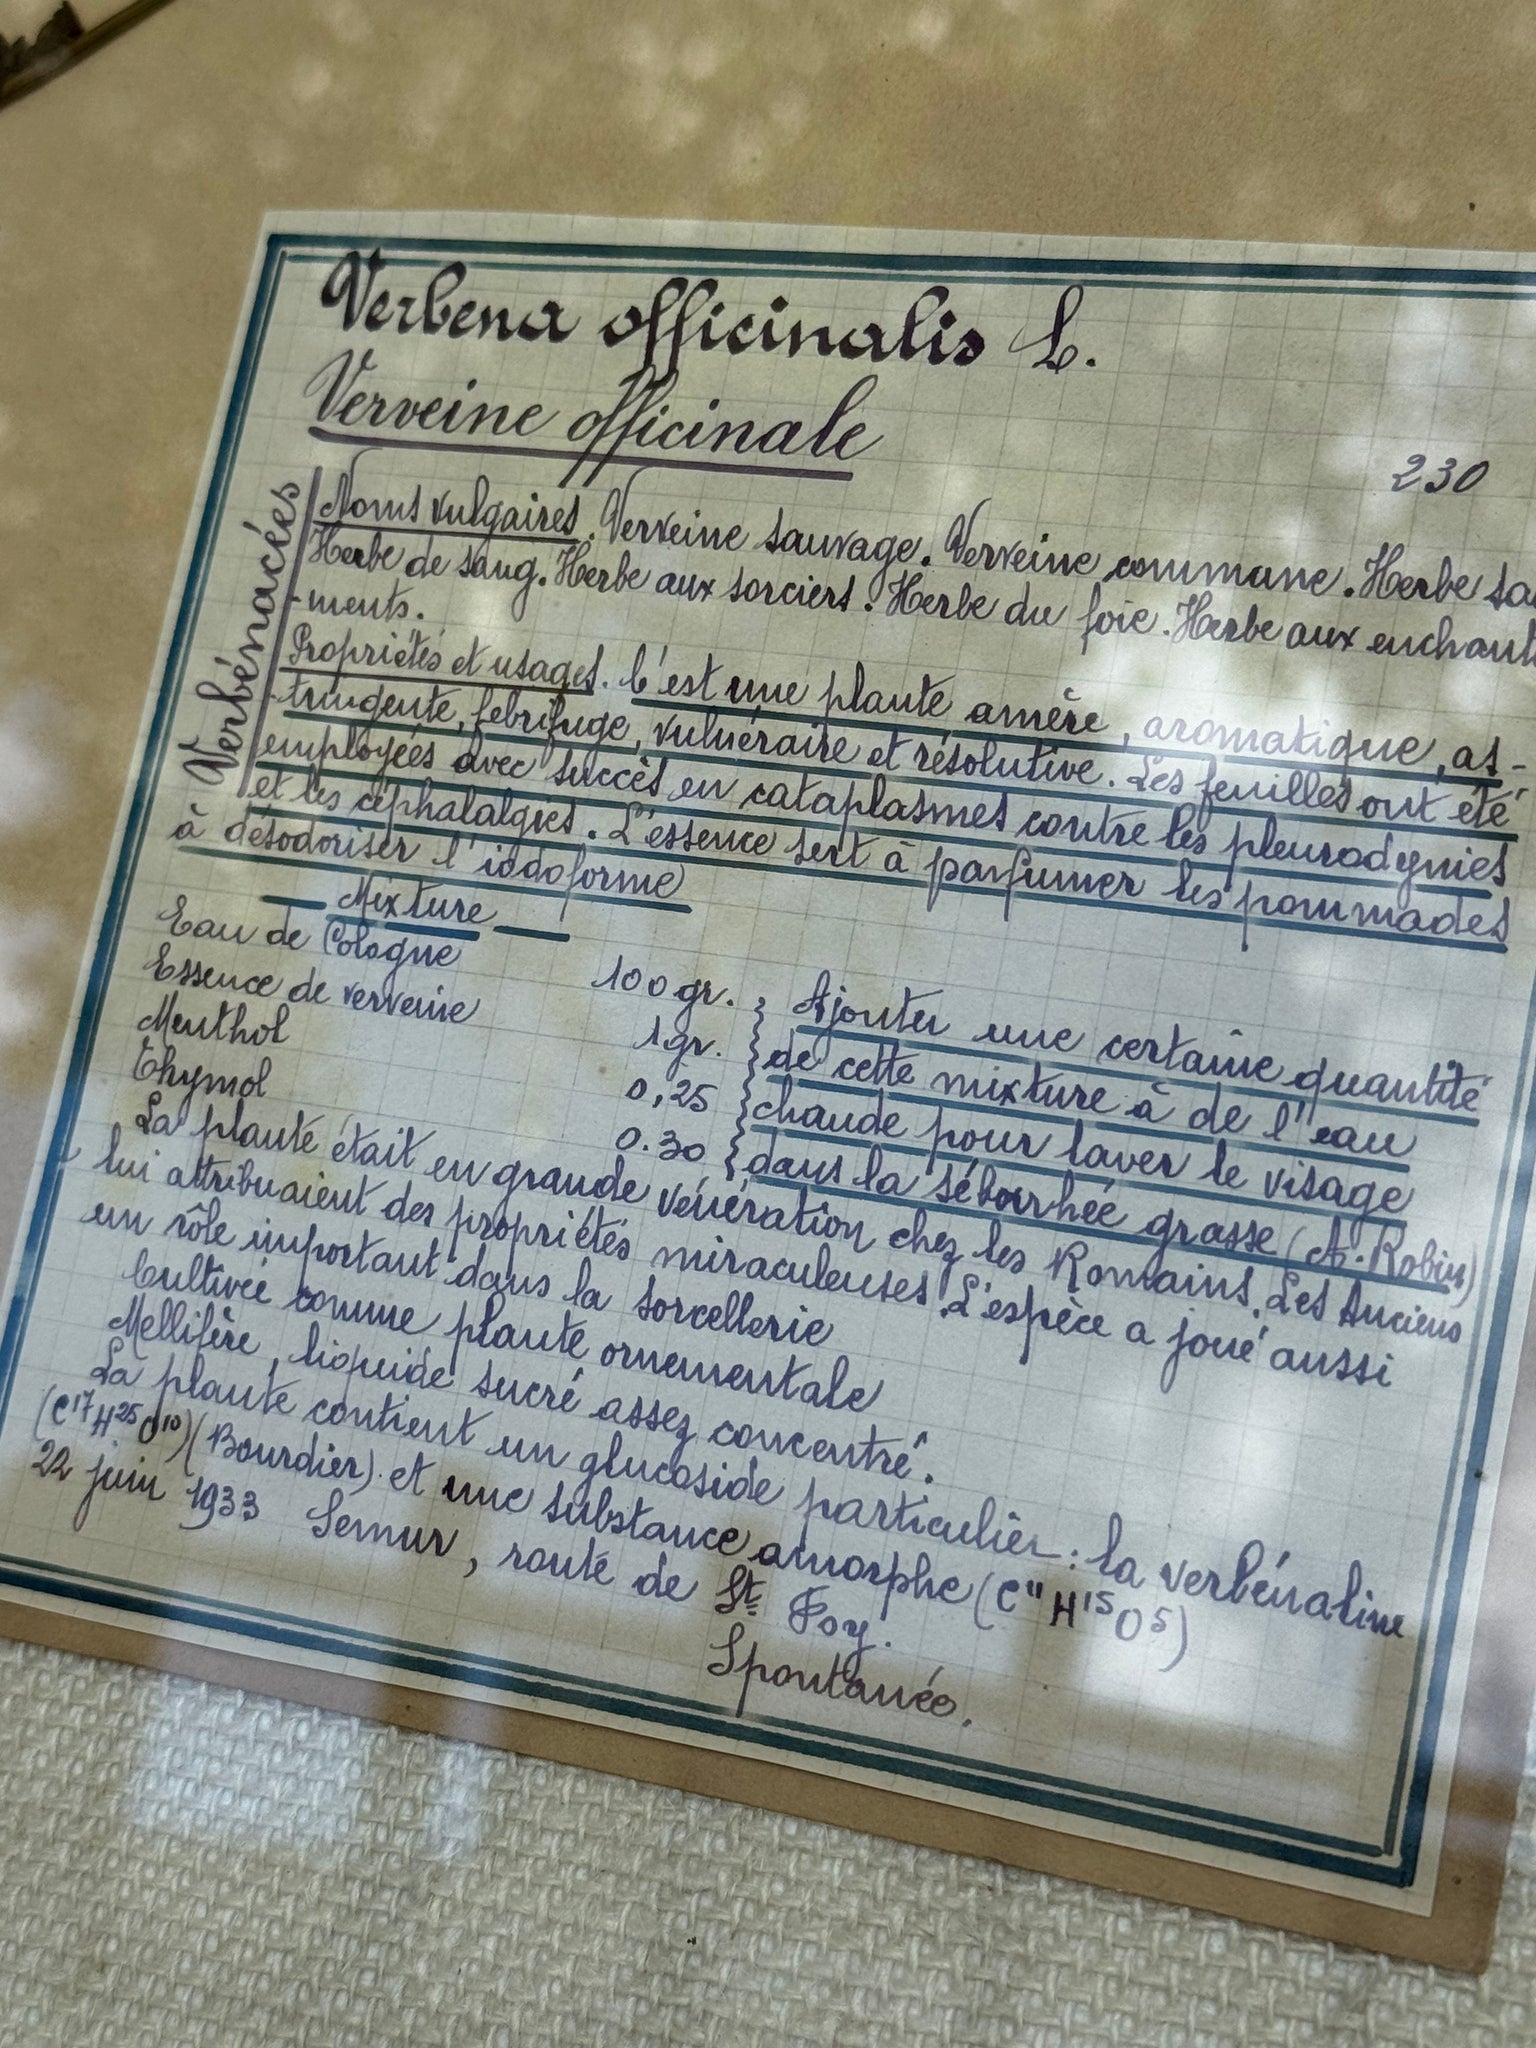 Verbena officinalis L.
Verveine officinale
230
Verbénacées
Noms vulgaires. Verveine sauvage. Verveine commune. Herbe sa
Herbe de sang. Herbe aux sorciers. Herbe du foie. Herbe aux enchant
-ments.
Propriétés et usages. C'est une plante amère, aromatique, as-
-tringente, febrifuge, vulnéraire et résolutive. Les feuilles ont été
employées avec succès en cataplasmes contre les pleurodynies
et les céphalalgies. L'essence sert à parfumer les pommades
à désodoriser l'iodoforme
Mixture
Eau de Cologne 100 gr.
Essence de verveine 1 gr.
Menthol 0,25
Thymol 0.30
Ajouter une certaine quantité
de cette mixture à de l'eau
chaude pour laver le visage
dans la séborrhée grasse (A. Robin)
La plante était en grande vénération chez les Romains. Les Anciens
lui attribuaient des propriétés miraculeuses. L'espèce a joué aussi
un rôle important dans la sorcellerie
Cultivée comme plante ornementale
Mellifère, liquide sucré assez concentré.
La plante contient un glucoside particulier : la verbénaline
(C¹⁷H²⁵O¹⁰) (Bourdier). et une substance amorphe (C¹¹H¹⁵O⁵)
22 juin 1933 Semur, route de St Foy.
Spontanée.